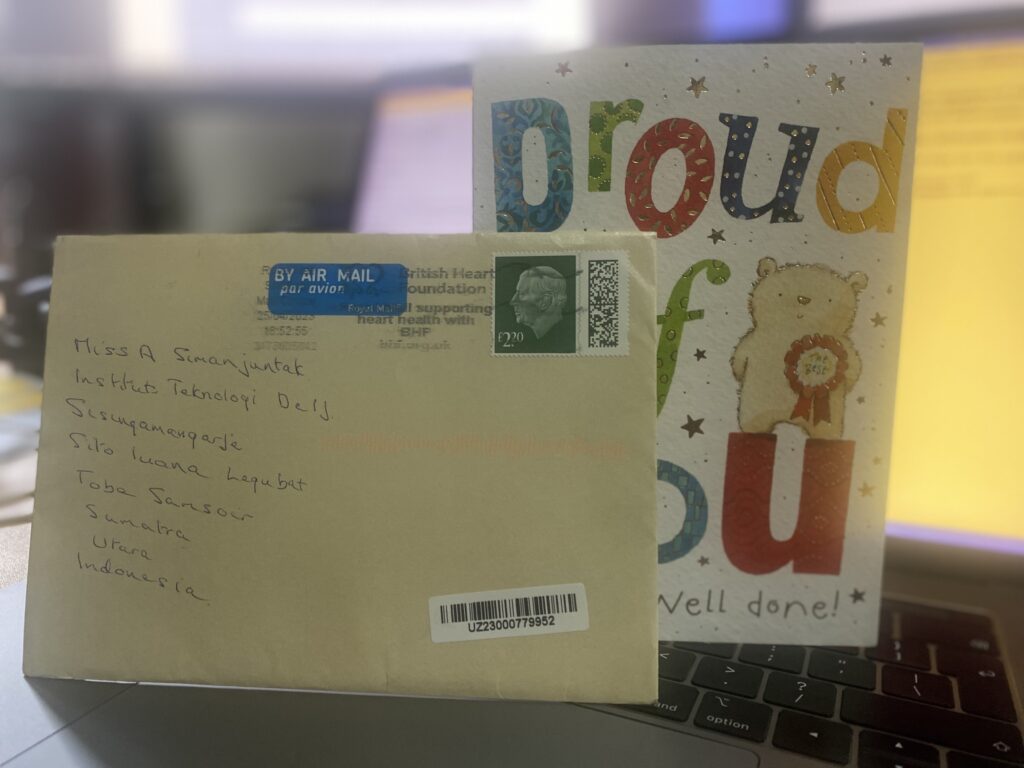 BY AIR MAIL
par avion
Royal Mail
British Heart
Foundation
supporting
heart health with
BHF
bhf.org.uk
25/04/2023
18:52:55
£2.20
Miss A Simanjuntak
Institut Teknologi Delj
Sisingamangaraja
Sito luana Lagubat
Toba Samsoir
Sumatra
Utara
Indonesia
UZ23000779952
proud
of
you
The
Best
Well done!
option